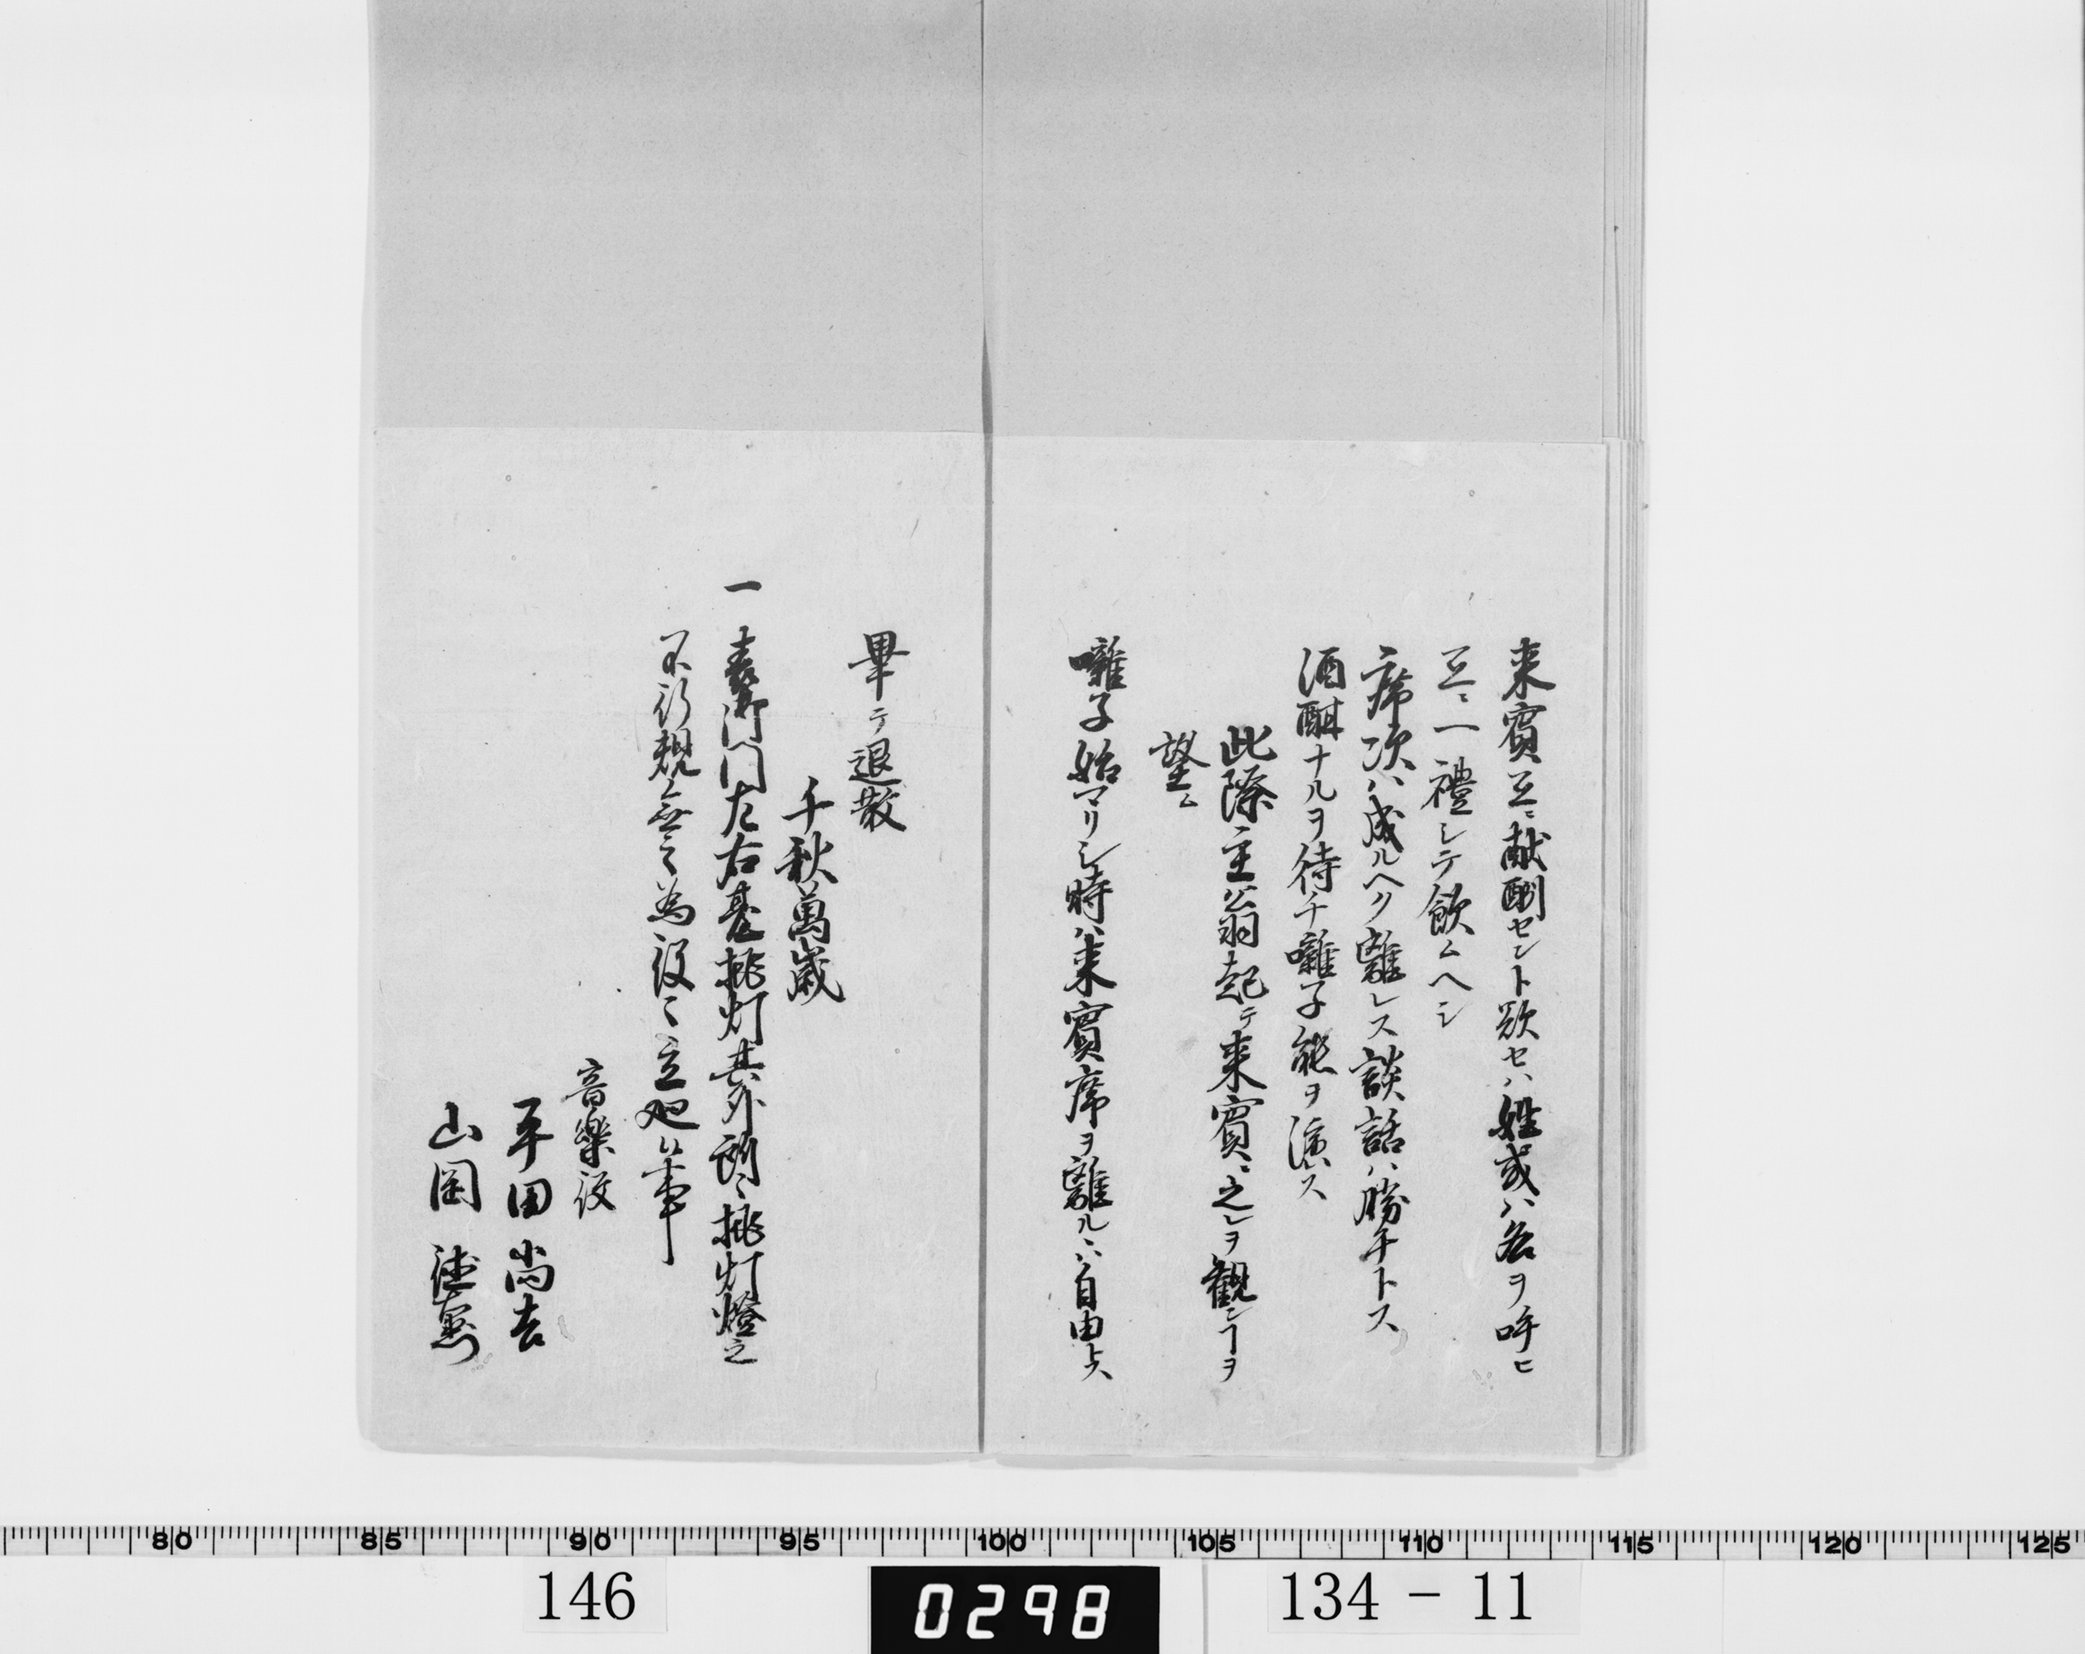 来賓互ニ献酬セント欲セハ姓或ハ名ヲ呼ヒ
互ニ一禮シテ飲ムヘシ
席次ハ成ルヘク離レス談話ハ勝手トス
酒酣ナルヲ待チ囃子能ヲ演ス
此際主公翁起テ来賓ニ之レヲ観ンヿヲ
望ム
囃子始マリシ時ハ来賓席ヲ離ルヽハ自由トス
畢テ退散
千秋萬歳
一 表御門左右高挑灯其外所々挑灯燈之
不行規無之為役々立廻候事
音樂役
平田尚吉
山岡
80 85 90 95 100 105 110 115 120 125
146 0298 134-11